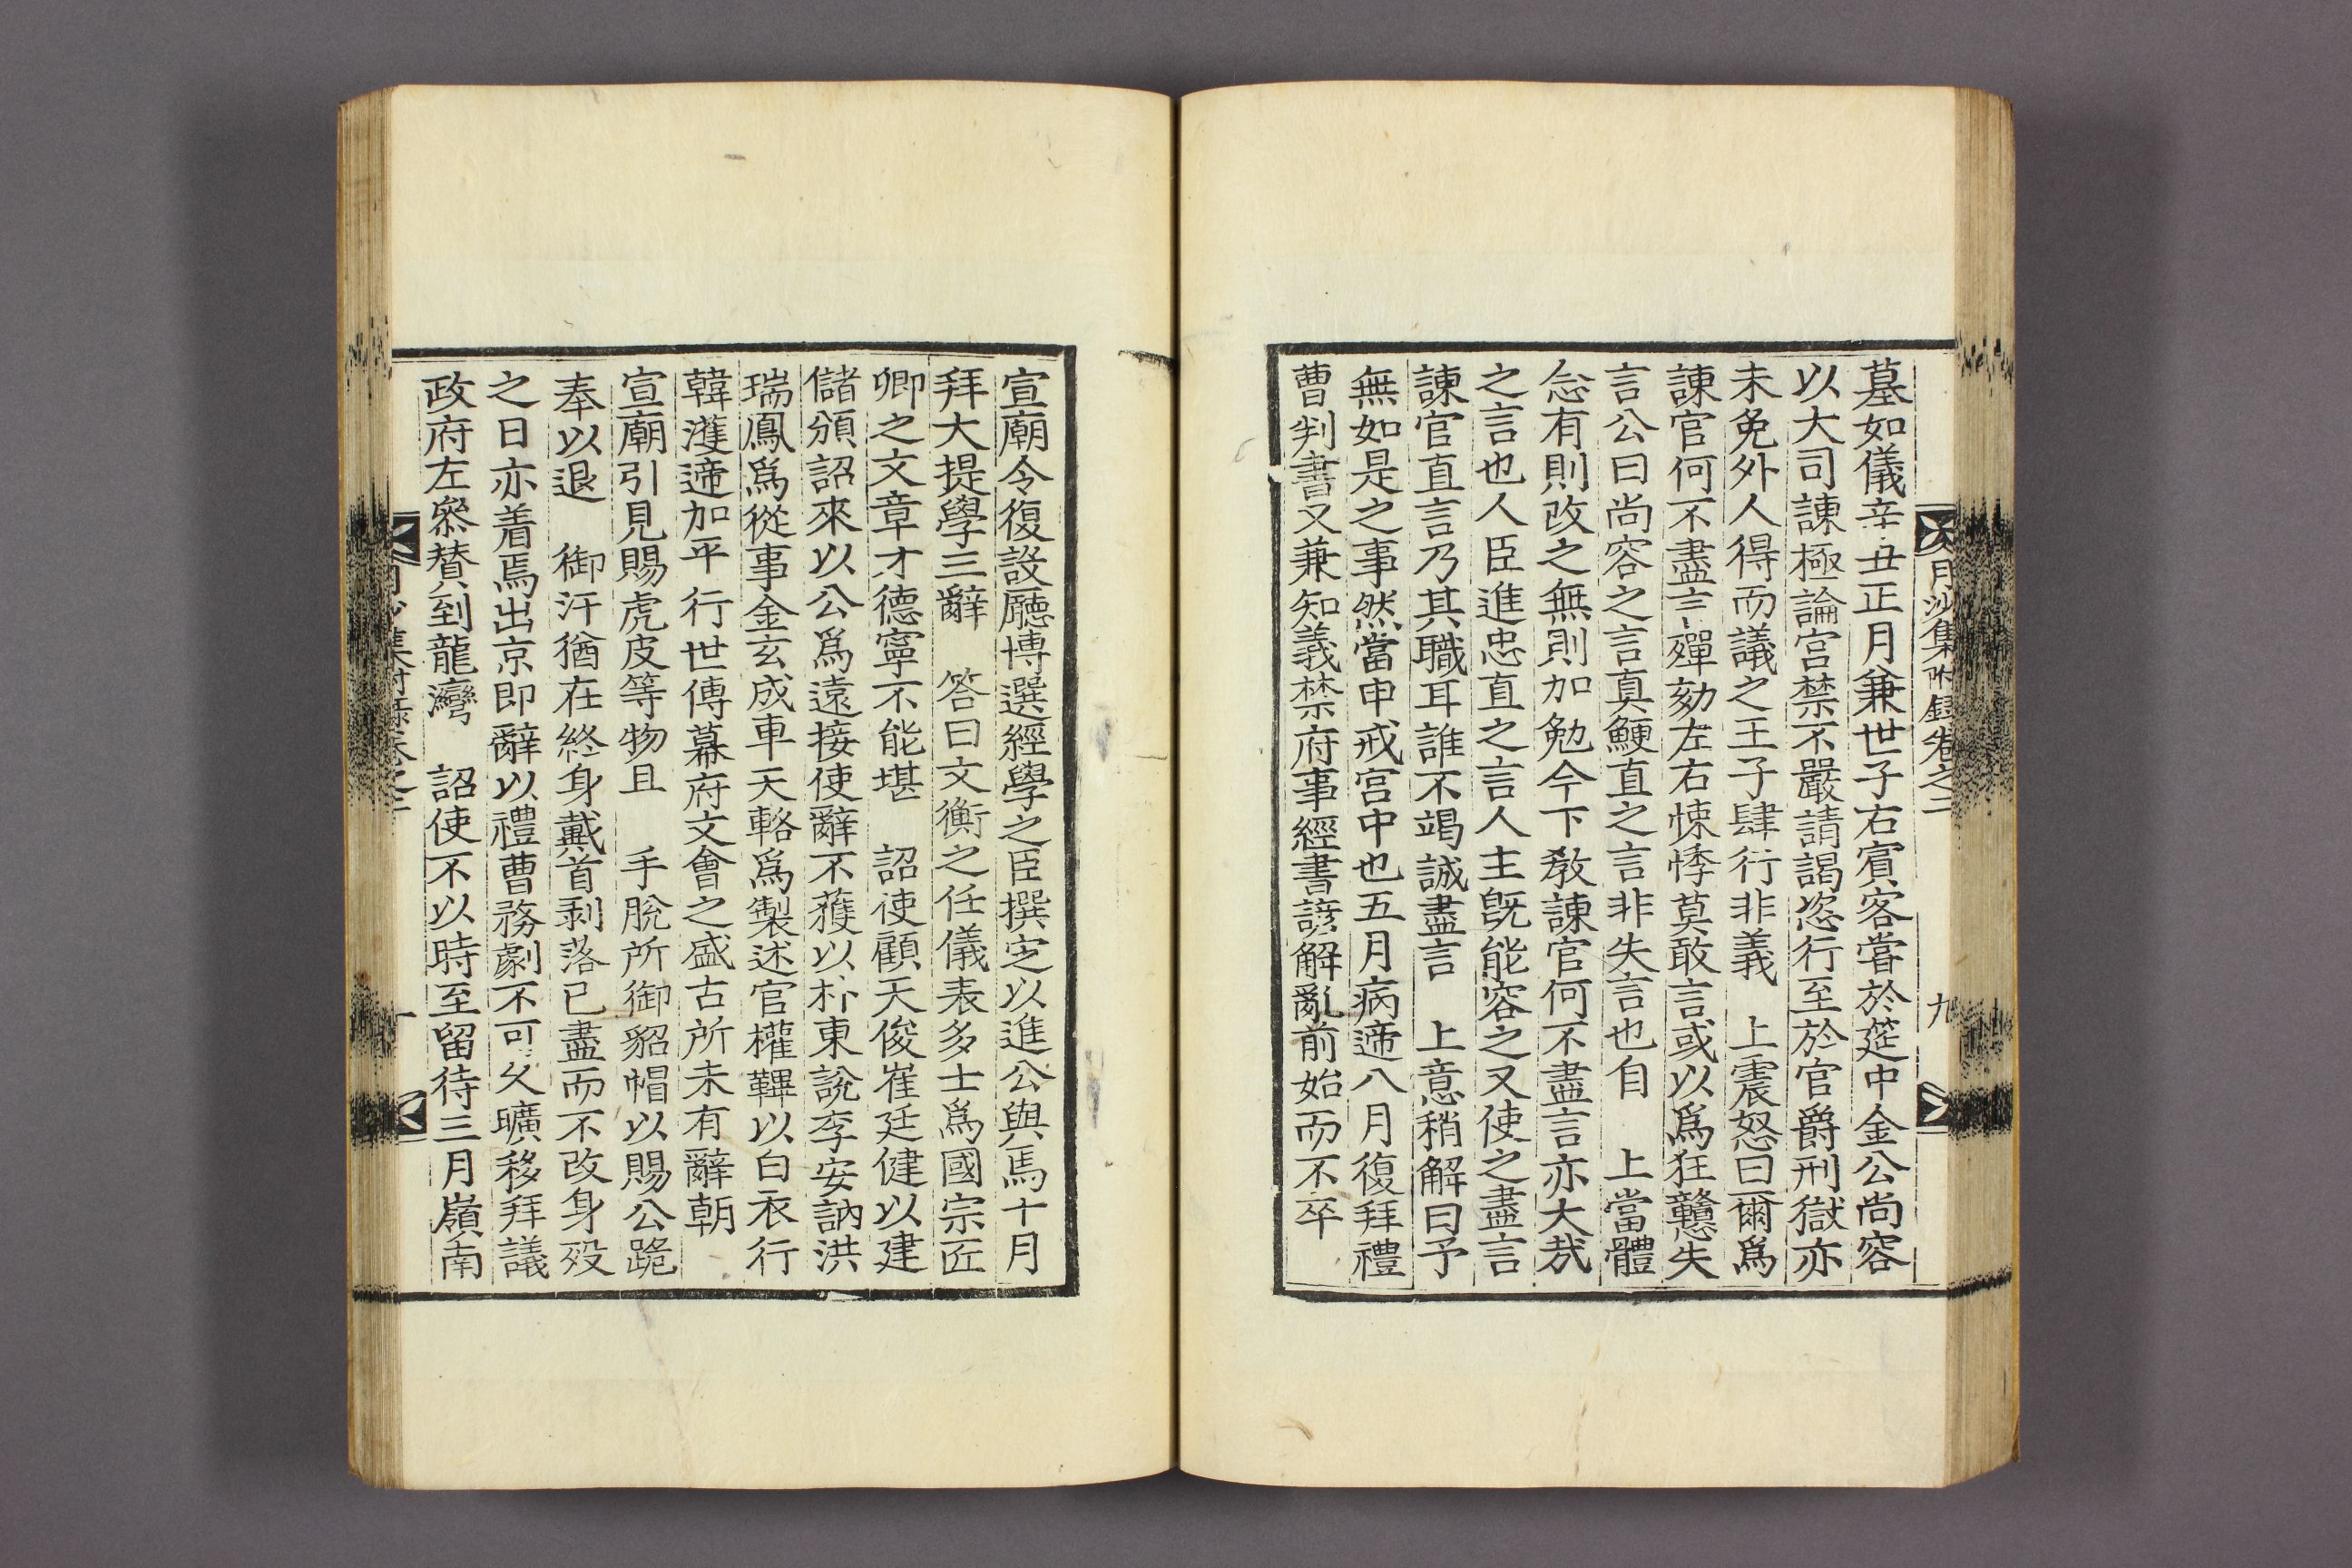 月沙集附錄卷之二 九
墓如儀辛丑正月兼世子右賓客嘗於筵中金公尚容
以大司諫極論宮禁不嚴請謁恣行至於官爵刑獄亦
未免外人得而議之王子肆行非義 上震怒曰爾爲
諫官何不盡言殫劾左右悚悸莫敢言或以爲狂戇失
言公曰尚容之言真鯁直之言非失言也自 上當體
念有則改之無則加勉今下教諫官何不盡言亦大哉
之言也人臣進忠直之言人主旣能容之又使之盡言
諫官直言乃其職耳誰不竭誠盡言 上意稍解曰予
無如是之事然當申戒宮中也五月病遞八月復拜禮
曹判書又兼知義禁府事經書諺解亂前始而不卒
宣廟令復設廳博選經學之臣撰定以進公與焉十月
拜大提學三辭 答曰文衡之任儀表多士爲國宗匠
卿之文章才德寧不能堪 詔使顧天俊崔廷健以建
儲頒詔來以公爲遠接使辭不獲以朴東說李安訥洪
瑞鳳爲從事金玄成車天輅爲製述官權韠以白衣行
韓濩遞加平行世傳幕府文會之盛古所未有辭朝
宣廟引見賜虎皮等物且 手脫所御貂帽以賜公跪
奉以退 御汗猶在終身戴首剥落已盡而不改身歿
之日亦着焉出京即辭以禮曹務劇不可久曠移拜議
政府左叅賛到龍灣 詔使不以時至留待三月嶺南